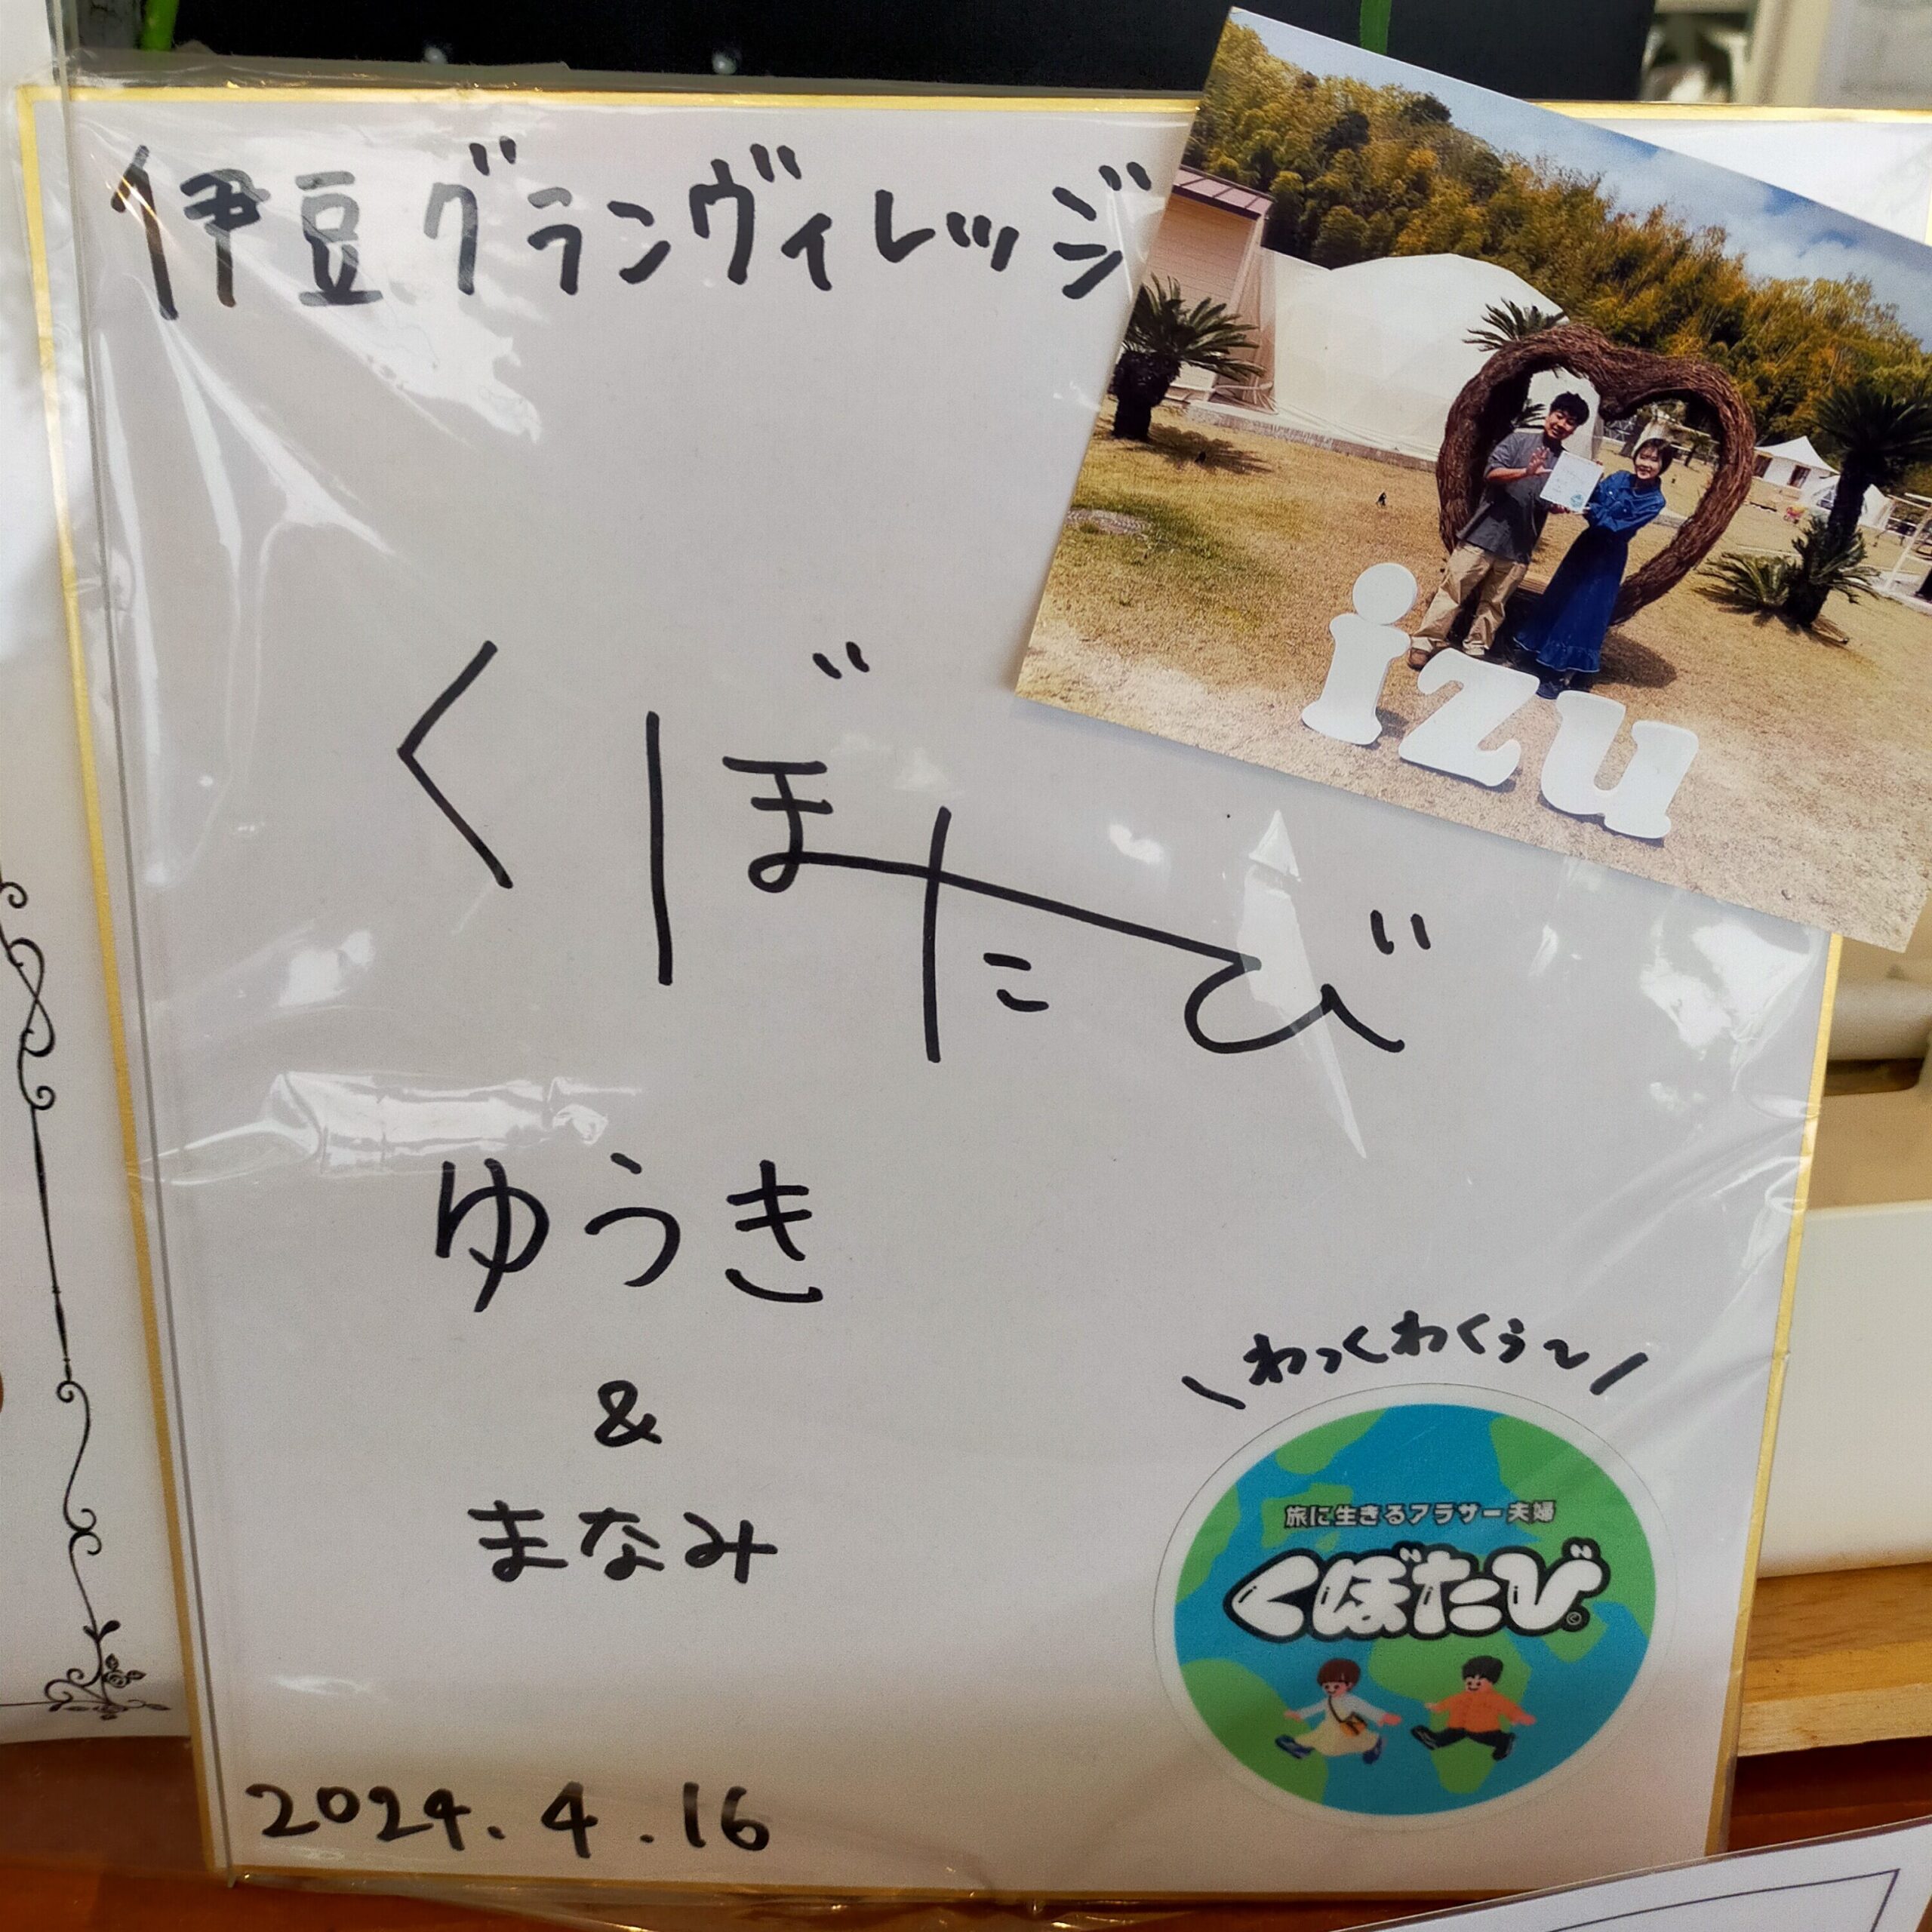 伊豆グランヴィレッジ
izu
くぼたび
ゆうき
&
まなみ
\わっくわくぅ~/
旅に生きるアラサー夫婦
くぼたび©
2024.4.16